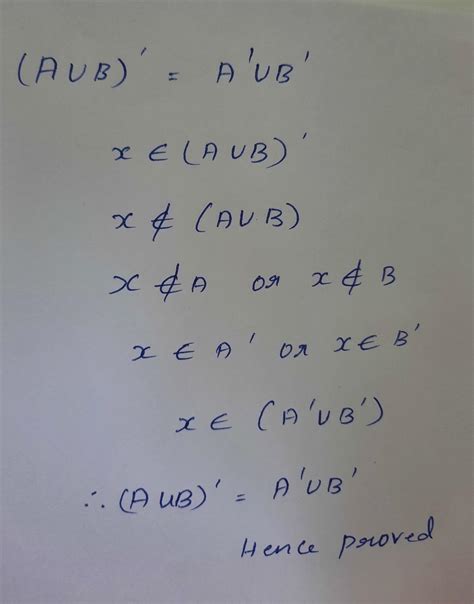 (A∪B)' = A'∪B'
x ∈ (A∪B)'
x ∉ (A∪B)
x ∉ A or x ∉ B
x ∈ A' or x ∈ B'
x ∈ (A'∪B')
∴ (A∪B)' = A'∪B'
Hence proved